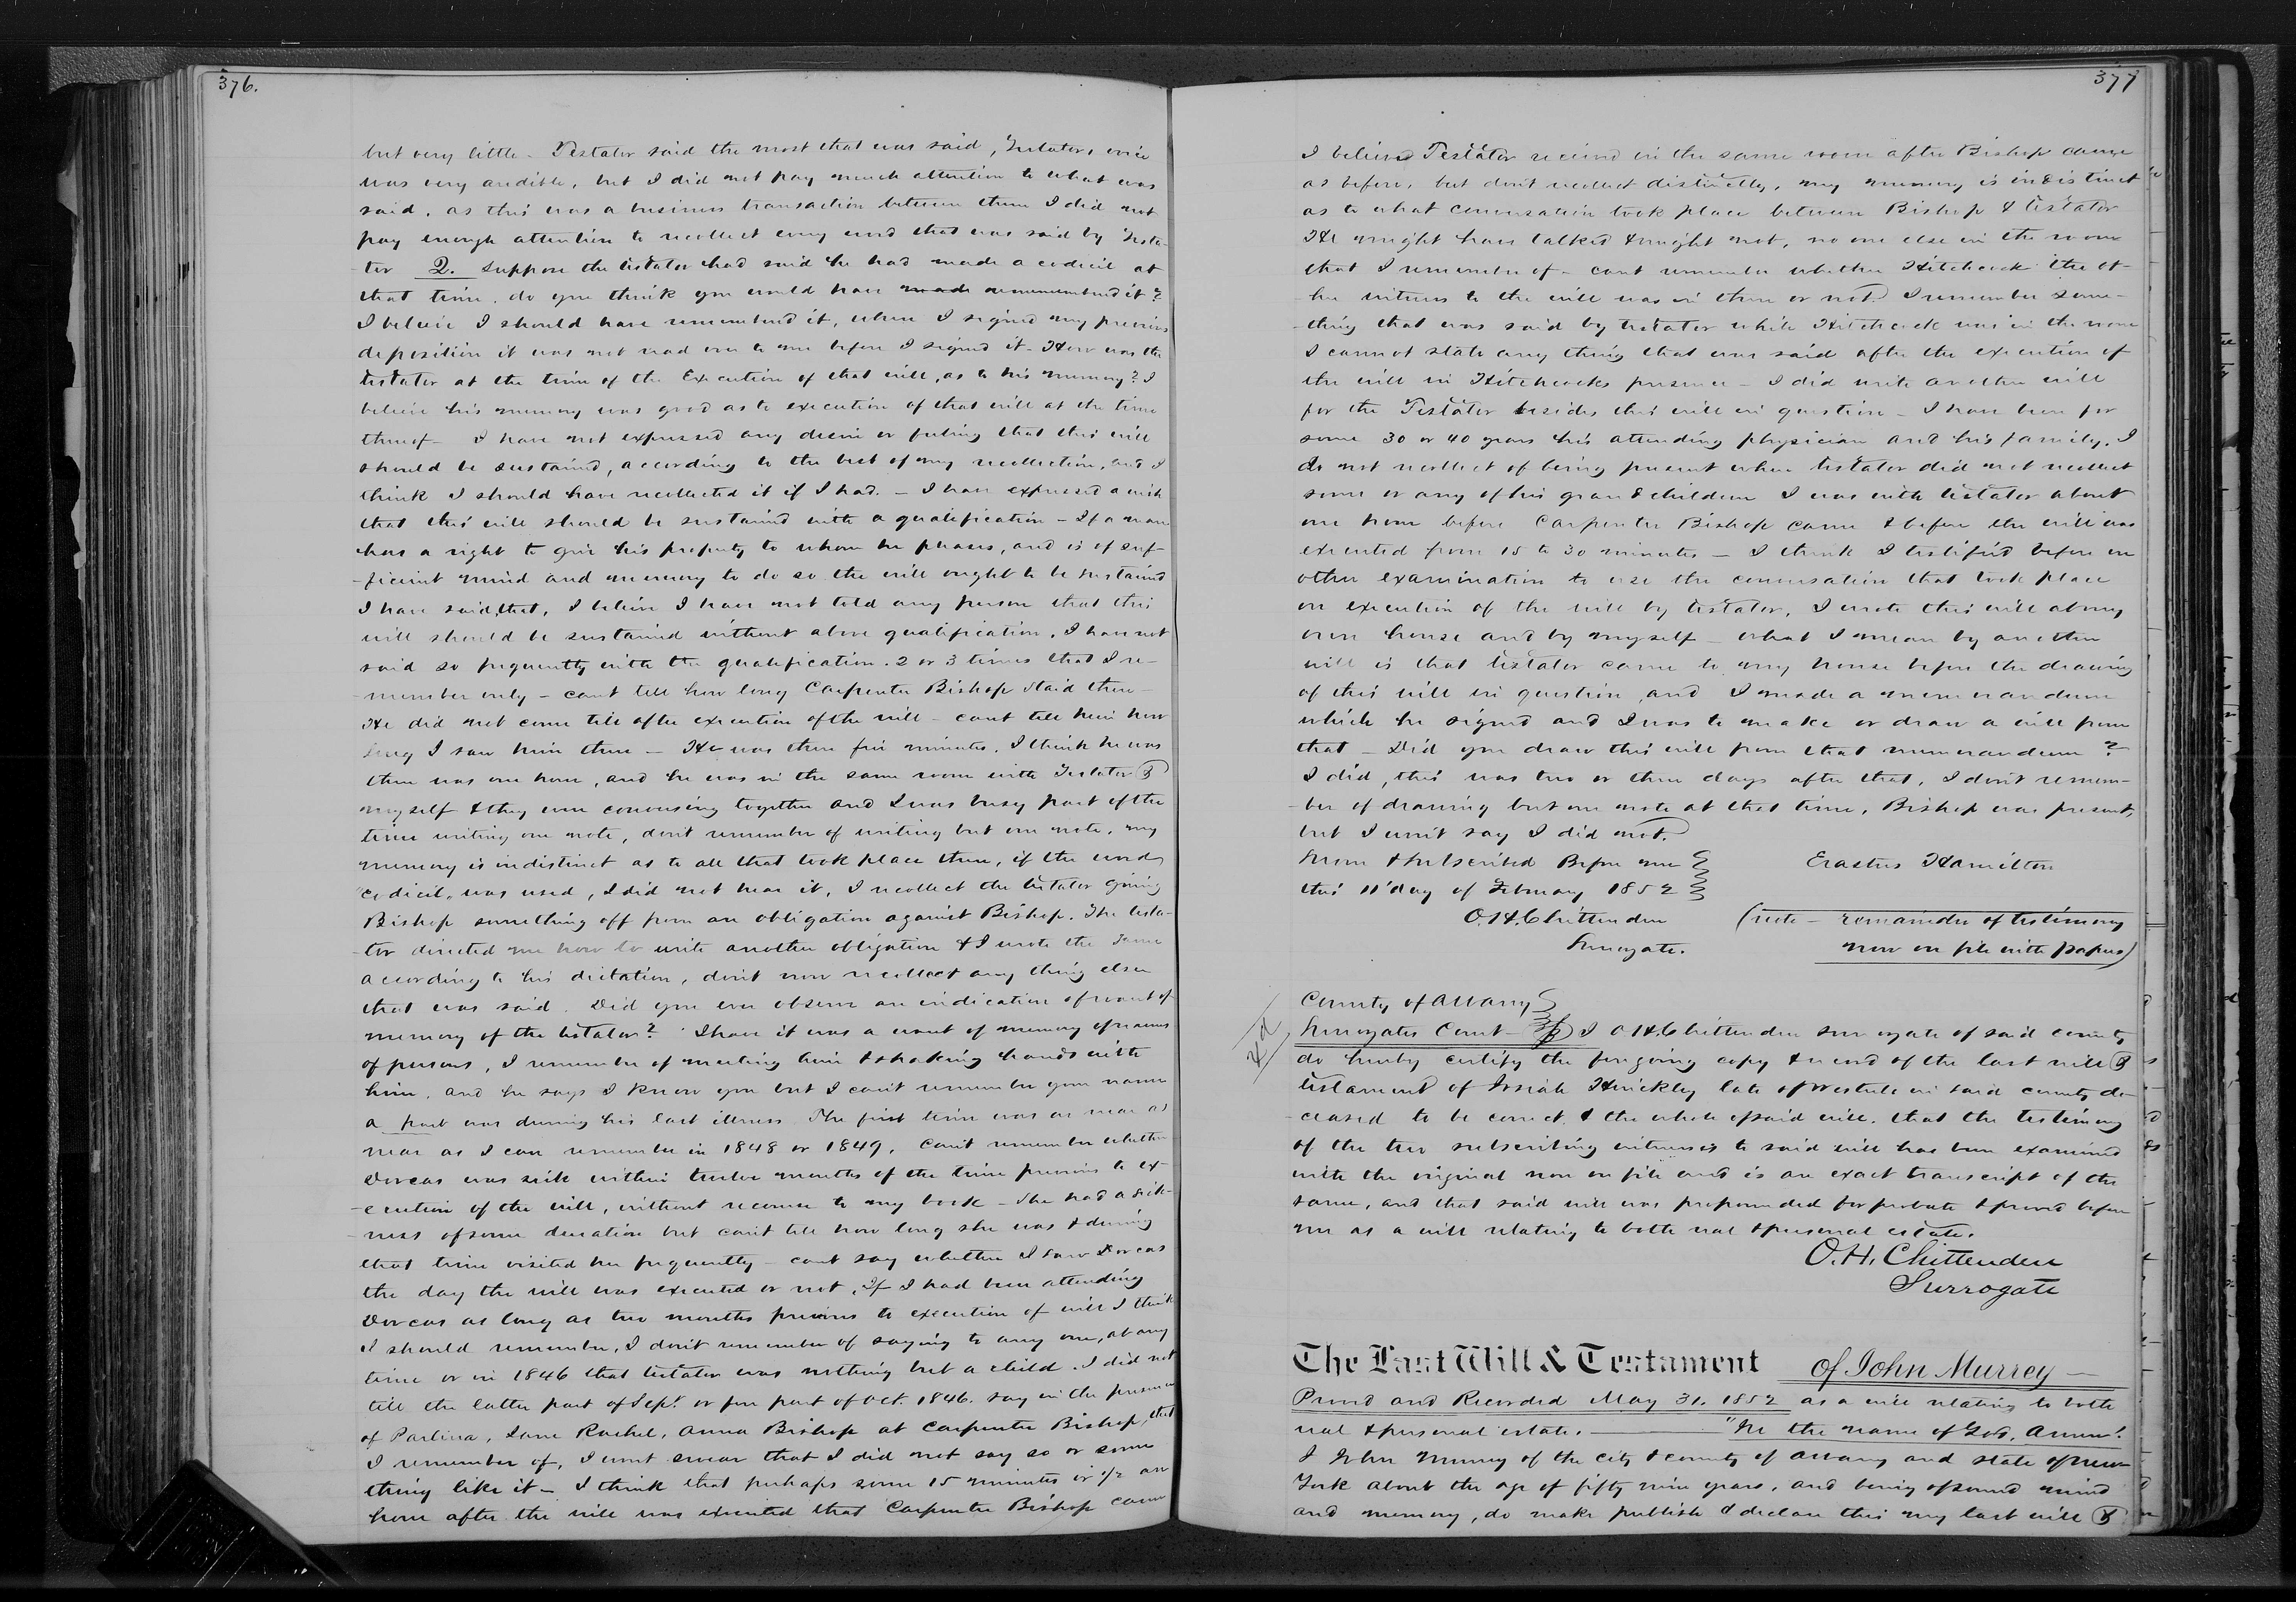 376.
but very little - Testator said the most that was said, Testators voice
was very audible, but I did not pay much attention to what was
said, as this was a business transaction between them I did not
pay enough attention to recollect every word that was said by Testa-
tor Q. Suppose the testator had said he had made a codicil at
that time, do you think you would have made remembered it?
I believe I should have remembered it, when I signed my previous
deposition it was not read over to me before I signed it - How was the
testator at the time of the Execution of that will, as to his memory? I
believe his memory was good as to execution of that will at the time
thereof - I have not expressed any desire or feeling that this will
should be sustained, according to the best of my recollection, and I
think I should have recollected it if I had. - I have expressed a wish
that this will should be sustained with a qualification - If a man
has a right to give his property to whom he pleases, and is of suf-
-ficient mind and memory to do so the will ought to be sustained
I have said that, I believe I have not told any person that this
will should be sustained without above qualification, I have not
said so frequently with the qualification. 2 or 3 times that I re-
-member only - cant tell how long Carpenter Bishop staid there -
He did not come till after execution of the will - cant tell him how
long I saw him there - He was there few minutes, I think he was
there was one hour, and he was in the same room with Testator &
myself & they were conversing together and I was busy part of the
time writing one note, don't remember of writing but one note, my
memory is indistinct as to all that took place there, if the word
"codicil" was used, I did not hear it, I recollect the testator giving
Bishop something off from an obligation against Bishop. The testa-
-tor directed me how to write another obligation & I wrote the same
according to his dictation, don't now recollect any thing else
that was said. Did you ever observe an indication of want of
memory of the testator? I have it was a want of memory of names
of persons, I remember of meeting him & shaking hands with
him, and he says I know you but I can't remember your name
a part was during his last illness The first time was as near as
near as I can remember in 1848 or 1849, Can't remember whether
Dorcas was sick within twelve months of the time previous to ex-
-ecution of the will, without recourse to my book - She had a sick-
-ness of some duration but can't tell how long she was & during
that time visited her frequently - cant say whether I saw Dorcas
the day the will was executed or not, If I had been attending
Dorcas as long as two months previous to execution of will I think
I should remember, I don't remember of saying to any one, at any
time or in 1846 that testator was nothing but a child. I did not
till the latter part of Sept. or fore part of Oct. 1846. say in the presence
of Paulina, Jane Rachel, Anna Bishop at Carpenter Bishop, that
I remember of, I wont swear that I did not say so or some
thing like it - I think that perhaps some 15 minutes or 1/2 an
hour after the will was executed that Carpenter Bishop came
377
I believe Testator received in the same room after Bishop came
as before, but don't recollect distinctly, my memory is indistinct
as to what conversation took place between Bishop & testator
He might have talked & might not, no one else in the room
that I remember of - cant remember whether Hitchcock the ot-
-her witness to the will was in there or not. I remember some-
-thing that was said by testator while Hitchcock was in the room
I cannot state any thing that was said after the execution of
the will in Hitchcocks presence - I did write another will
for the Testator besides this will in question - I have been for
some 30 or 40 years his attending physician and his family. I
do not recollect of being present when testator did not recollect
some or any of his grandchildren I was with testator about
one hour before Carpenter Bishop came & before the will was
executed from 15 to 30 minutes - I think I testified before on
other examination to use the conversation that took place
on execution of the will by testator, I wrote this will at my
own house and by myself - what I mean by another
will is that testator came to my house before the drawing
of this will in question, and I made a memorandum
which he signed and I was to make or draw a will from
that - Did you draw this will from that memorandum?
I did, this was two or three days after that, I don't remem-
-ber of drawing but one note at that time, Bishop was present,
but I wont say I did not.
Sworn & subscribed Before me
this 11th day of February 1852
Erastus Hamilton
O. H. Chittenden
Surrogate.
(note - remainder of testimony
now on file with papers)
County of Albany
Surrogates Court - ss I O. H. Chittenden surrogate of said county
do hereby certify the foregoing copy & record of the last will &
testament of Josiah Hinckley late of Westerlo in said county de-
-ceased to be correct & the whole of said will. that the testimony
of the two subscribing witnesses to said will has been examined
with the original now on file and is an exact transcript of the
same, and that said will was propounded for probate & proved before
me as a will relating to both real & personal estate.
O. H. Chittenden
Surrogate
The Last Will & Testament of John Murrey -
Proved and Recorded May 31. 1852 as a will relating to both
real & personal estate. - "In the name of God, Amen".
I John Murrey of the city & county of Albany and state of New
York about the age of fifty nine years, and being of sound mind
and memory, do make publish & declare this my last will &